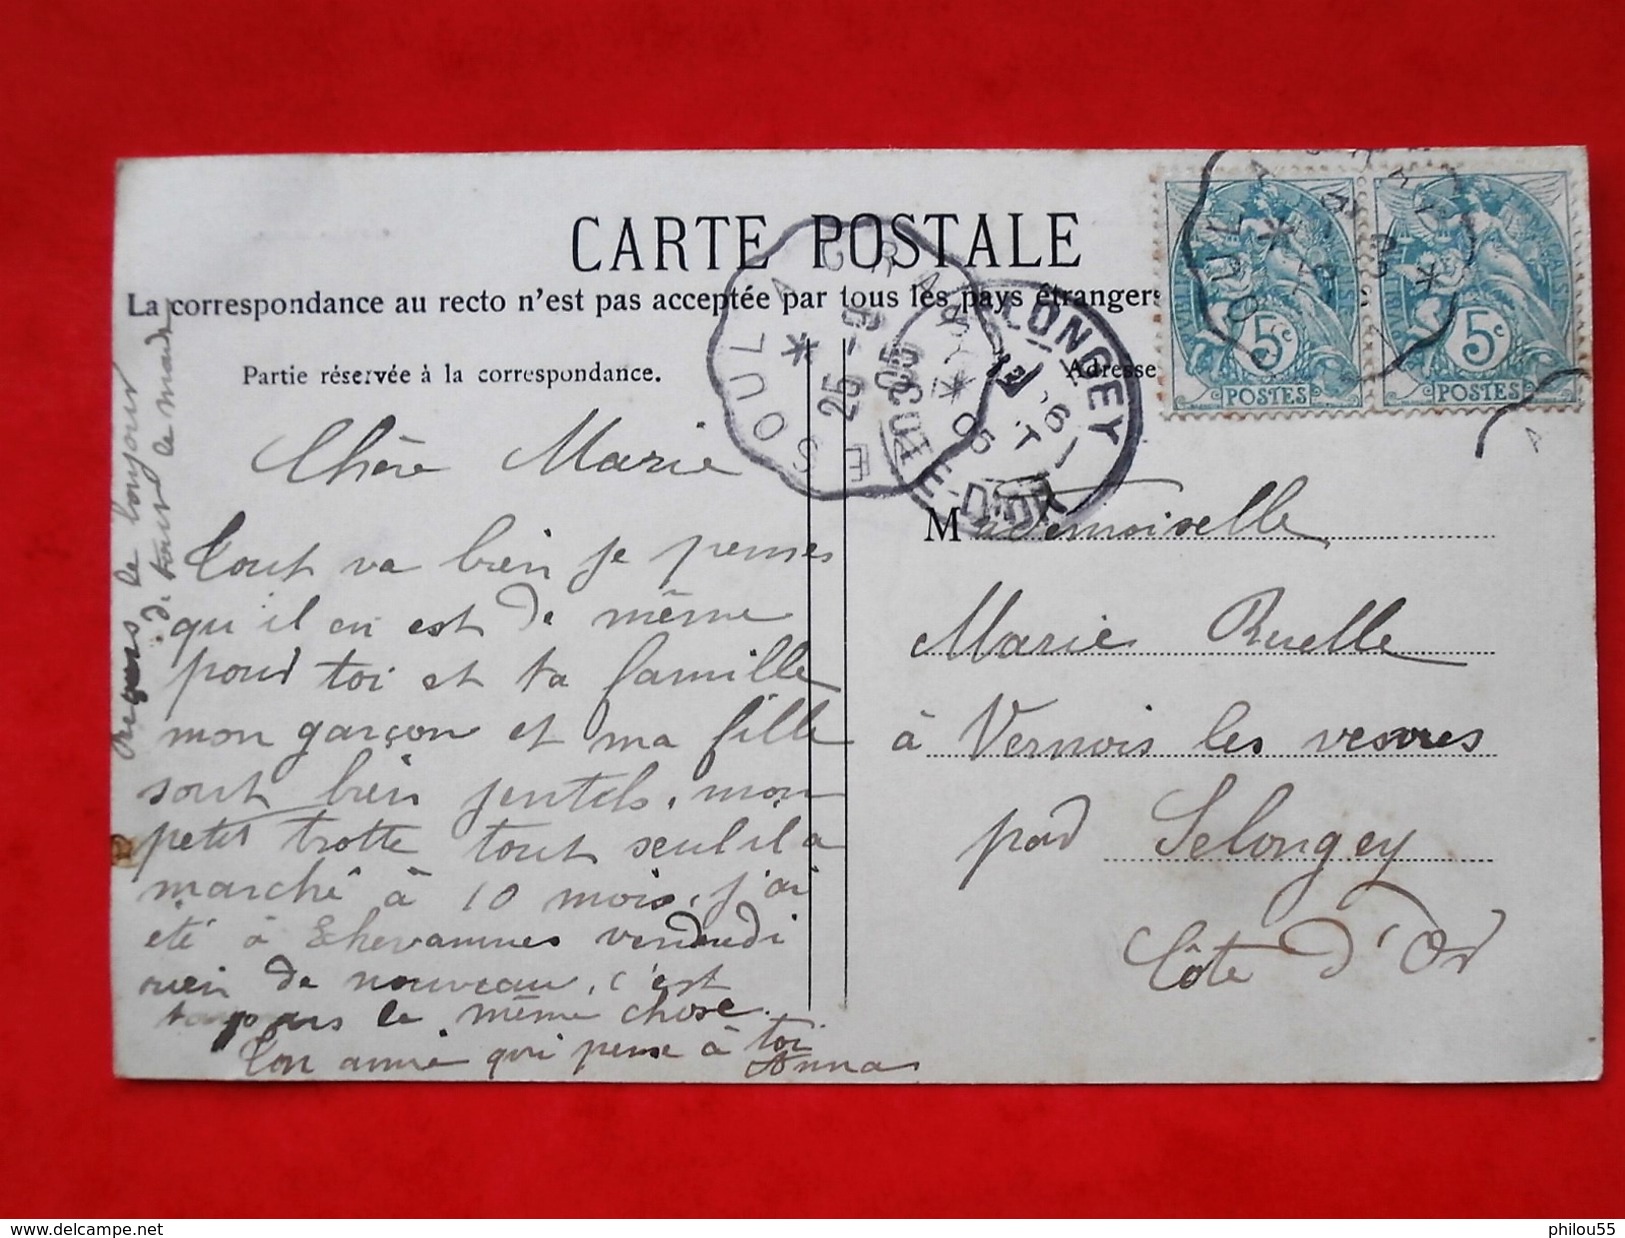 CARTE POSTALE
La correspondance au recto n'est pas acceptée par tous les pays étrangers
Partie réservée à la correspondance.
Adresse
Chère Marie
tout va bien je penses
qu'il en est de même
pour toi et ta famille
mon garçon et ma fille
sont bien gentils, mon
petit trotte tout seul il a
marché à 10 mois, j'ai
été à Echevannes vendredi
rien de nouveau, c'est
toujours la même chose.
Ton amie qui pense à toi
Anna
le bonjour
de tout le monde
Mademoiselle
Marie Ruelle
à Vernois les vesvres
par Selongey
Côte d'Or
5c 5c
POSTES POSTES
SOUL A GRAY
25 -9
05
LONGEY
05
E-D'OR
www.delcampe.net
philou55